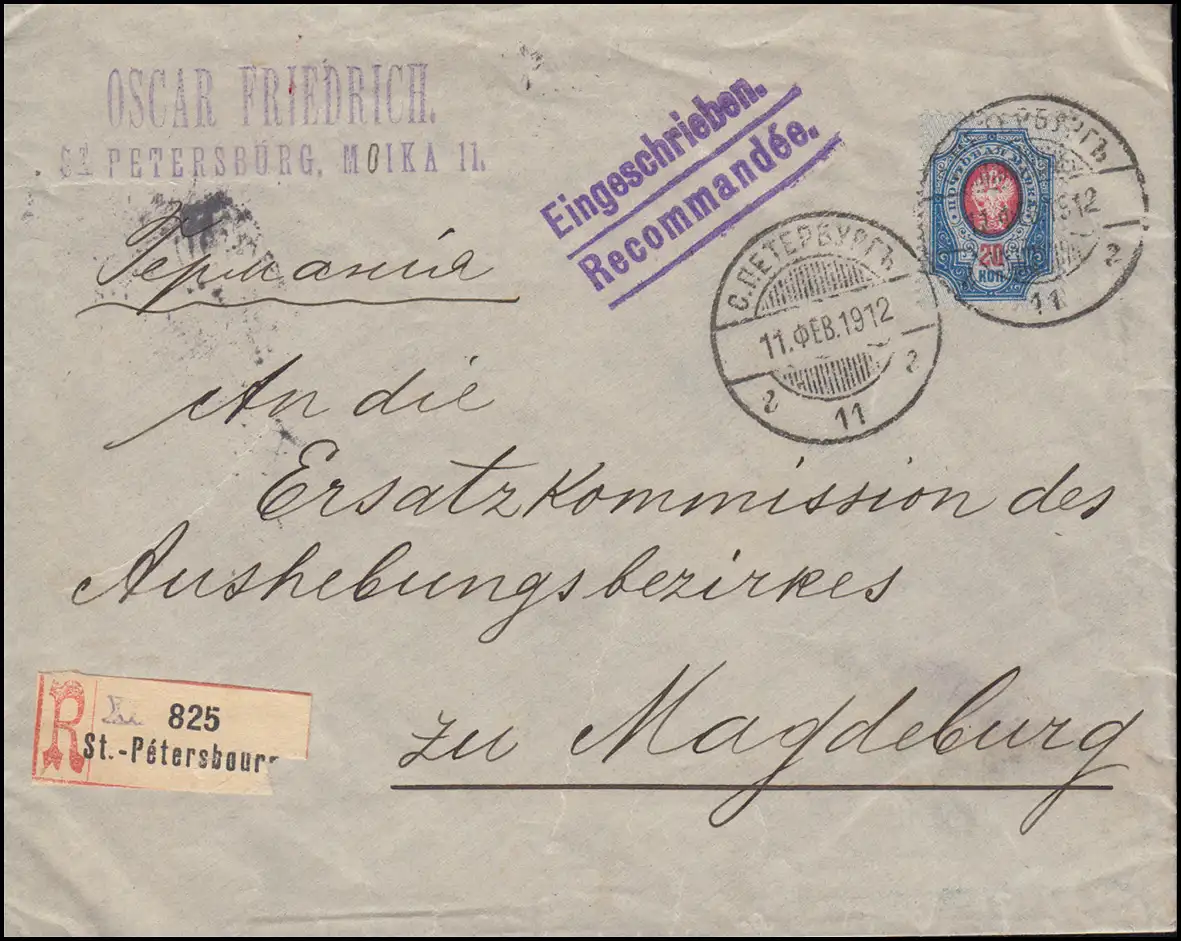 OSCAR FRIEDRICH.
ST. PETERSBURG, MOIKA 11.
Eingeschrieben.
Recommandée.
Германія
С.ПЕТЕРБУРГЪ
11.ФЕВ.1912
2 11 2
ПЕТЕРБУРГЪ
1912
11 2
ПОЧТОВАЯ МАРКА
20
КОП
An die
Ersatzkommission des
Aushebungsbezirkes
zu Magdeburg
R 825
St.-Pétersbourg